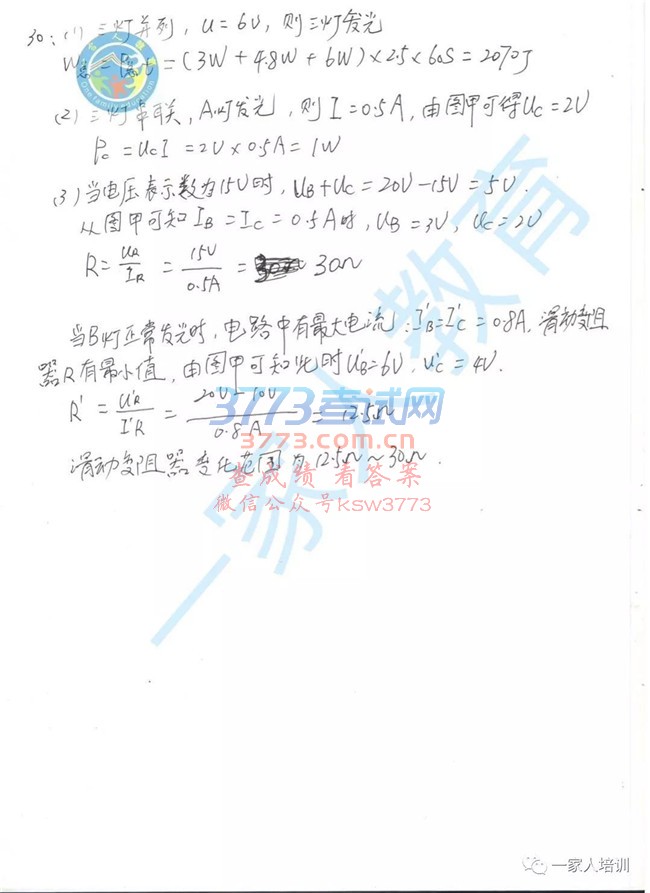 30：(1) 三灯并列，U=6V，则三灯发光
W总=P总t=(3W+4.8W+6W)×2.5×60S=2070J
(2) 三灯串联，A灯发光，则I=0.5A，由图甲可得Uc=2V
Pc=UcI=2V×0.5A=1W
(3) 当电压表示数为15V时，UB+UC=20V-15V=5V.
从图甲可知IB=IC=0.5A时，UB=3V，UC=2V
R=UR/IR=15V/0.5A=30Ω
当B灯正常发光时，电路中有最大电流：I'B=I'C=0.8A，滑动变阻
器R有最小值，由图甲可知此时U'B=6V，U'C=4V.
R'=U'R/I'R=20V-10V/0.8A=12.5Ω
滑动变阻器变化范围为12.5Ω~30Ω.
3773考试网
3773.com.cn
查成绩 看答案
微信公众号ksw3773
一家人教育
一家人培训